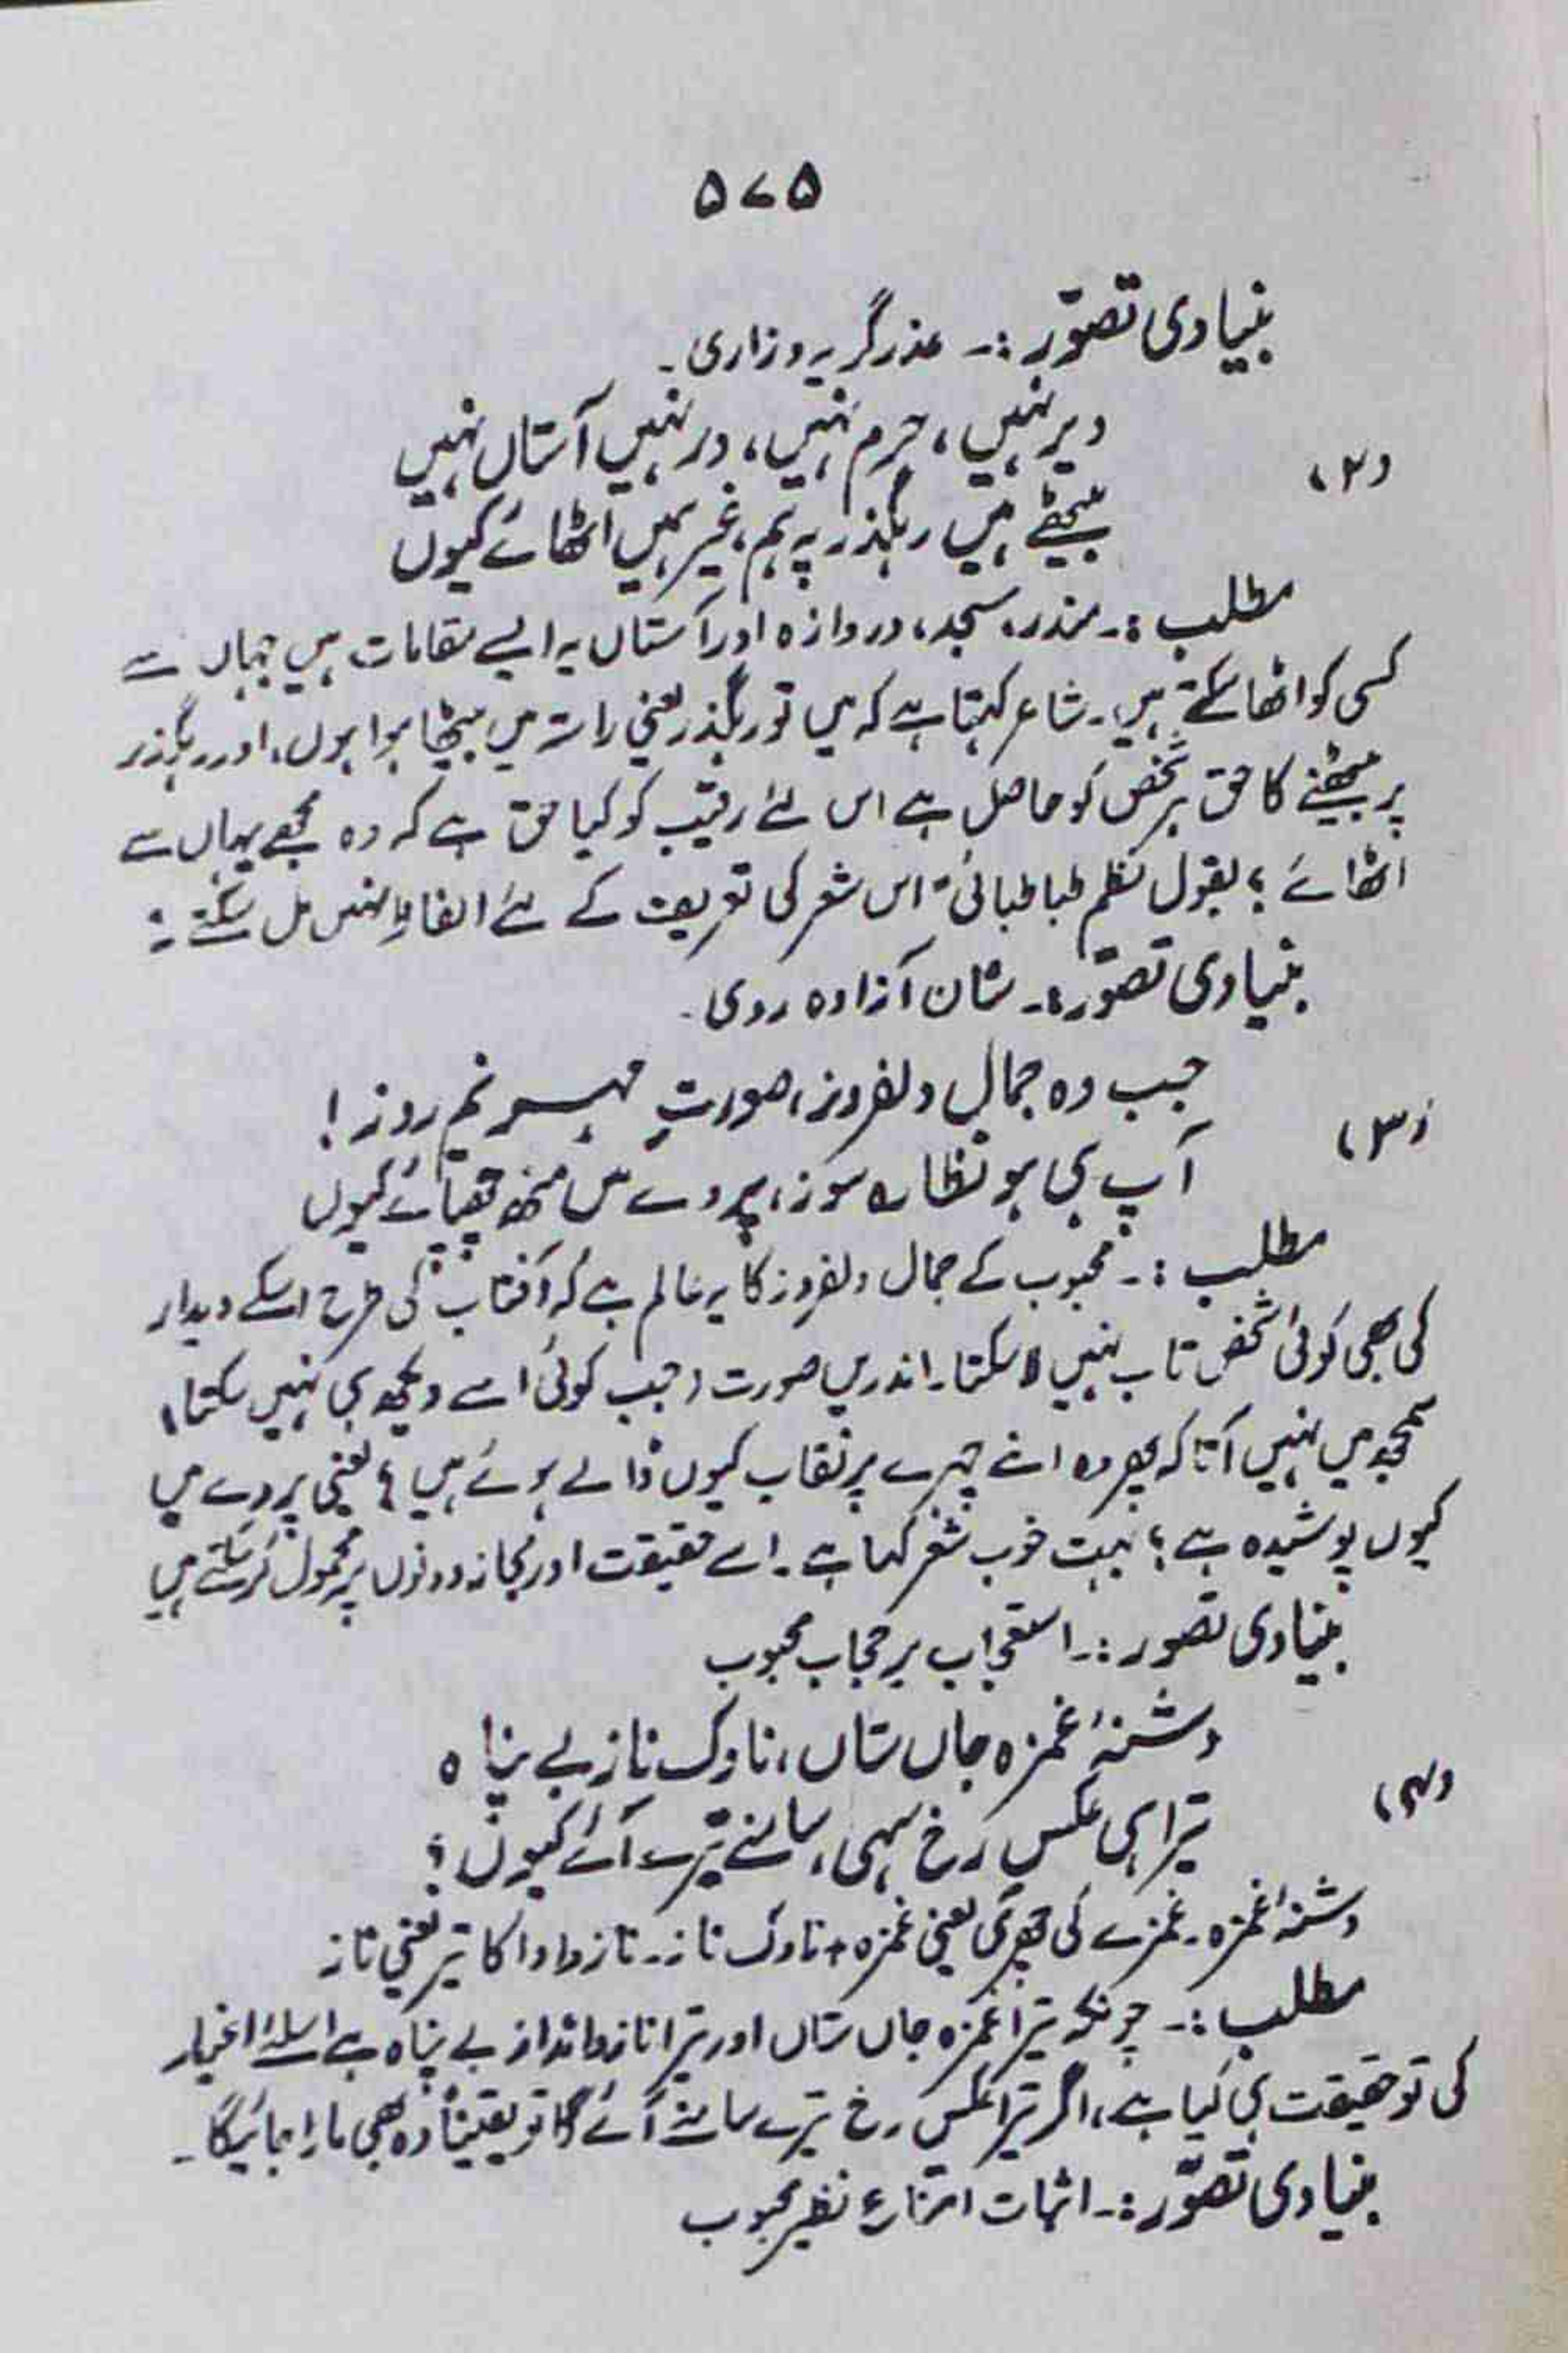 ۵۷۵
بنیادی تصوّر :۔ عذر گریہ و زاری۔
(۲)
دیر نہیں، حرم نہیں، در نہیں آستاں نہیں
بیٹھے ہیں رہگذر پہ ہم، غیر ہمیں اٹھائے کیوں
مطلب :۔ مندر، مسجد، دروازہ اور آستاں یہ ایسے مقامات ہیں جہاں سے
کسی کو اٹھا سکتے ہیں۔ شاعر کہتا ہے کہ میں تو رہگذر یعنی راستہ میں بیٹھا ہوا ہوں، اور رہگذر
پر بیٹھنے کا حق ہر شخص کو حاصل ہے اس لئے رقیب کو کیا حق ہے کہ وہ مجھے یہاں سے
اٹھائے؟ بقول نظم طباطبائی "اس شعر کی تعریف کے لئے الفاظ نہیں مل سکتے"
بنیادی تصوّر :۔ شان آزادہ روی۔
(۳)
جب وہ جمال دلفروز، صورتِ مہر نیم روز!
آپ ہی ہو نظارہ سوز، پردے میں منھ چھپائے کیوں
مطلب :۔ محبوب کے جمال دلفروز کا یہ عالم ہے کہ آفتاب کی طرح اسکے دیدار
کی بھی کوئی شخص تاب نہیں لا سکتا۔ اندریں صورت (جب کوئی اسے دیکھ ہی نہیں سکتا)
سمجھ میں نہیں آتا کہ پھر وہ اپنے چہرے پر نقاب کیوں ڈالے ہوئے ہیں؟ یعنی پردے میں
کیوں پوشیدہ ہے؟ بہت خوب شعر کہا ہے۔ اسے حقیقت اور مجاز دونوں پر محمول کر سکتے ہیں
بنیادی تصور :۔ استعجاب بر حجاب محبوب
(۴)
دشنۂ غمزہ جاں ستاں، ناوک ناز بے پناہ
تیرا ہی عکس رخ سہی، سامنے تیرے آئے کیوں؟
دشنۂ غمزہ۔ غمزے کی چھری یعنی غمزہ + ناوک ناز۔ ناز و ادا کا تیر یعنی ناز
مطلب :۔ چونکہ تیرا غمزہ جاں ستاں اور تیرا ناز و انداز بے پناہ ہے اسلئے اغیار
کی تو حقیقت ہی کیا ہے، اگر تیرا عکس رخ تیرے سامنے آئے گا تو یقیناً وہ بھی مارا جائیگا۔
بنیادی تصوّر :۔ اثبات امتناع نظیر محبوب